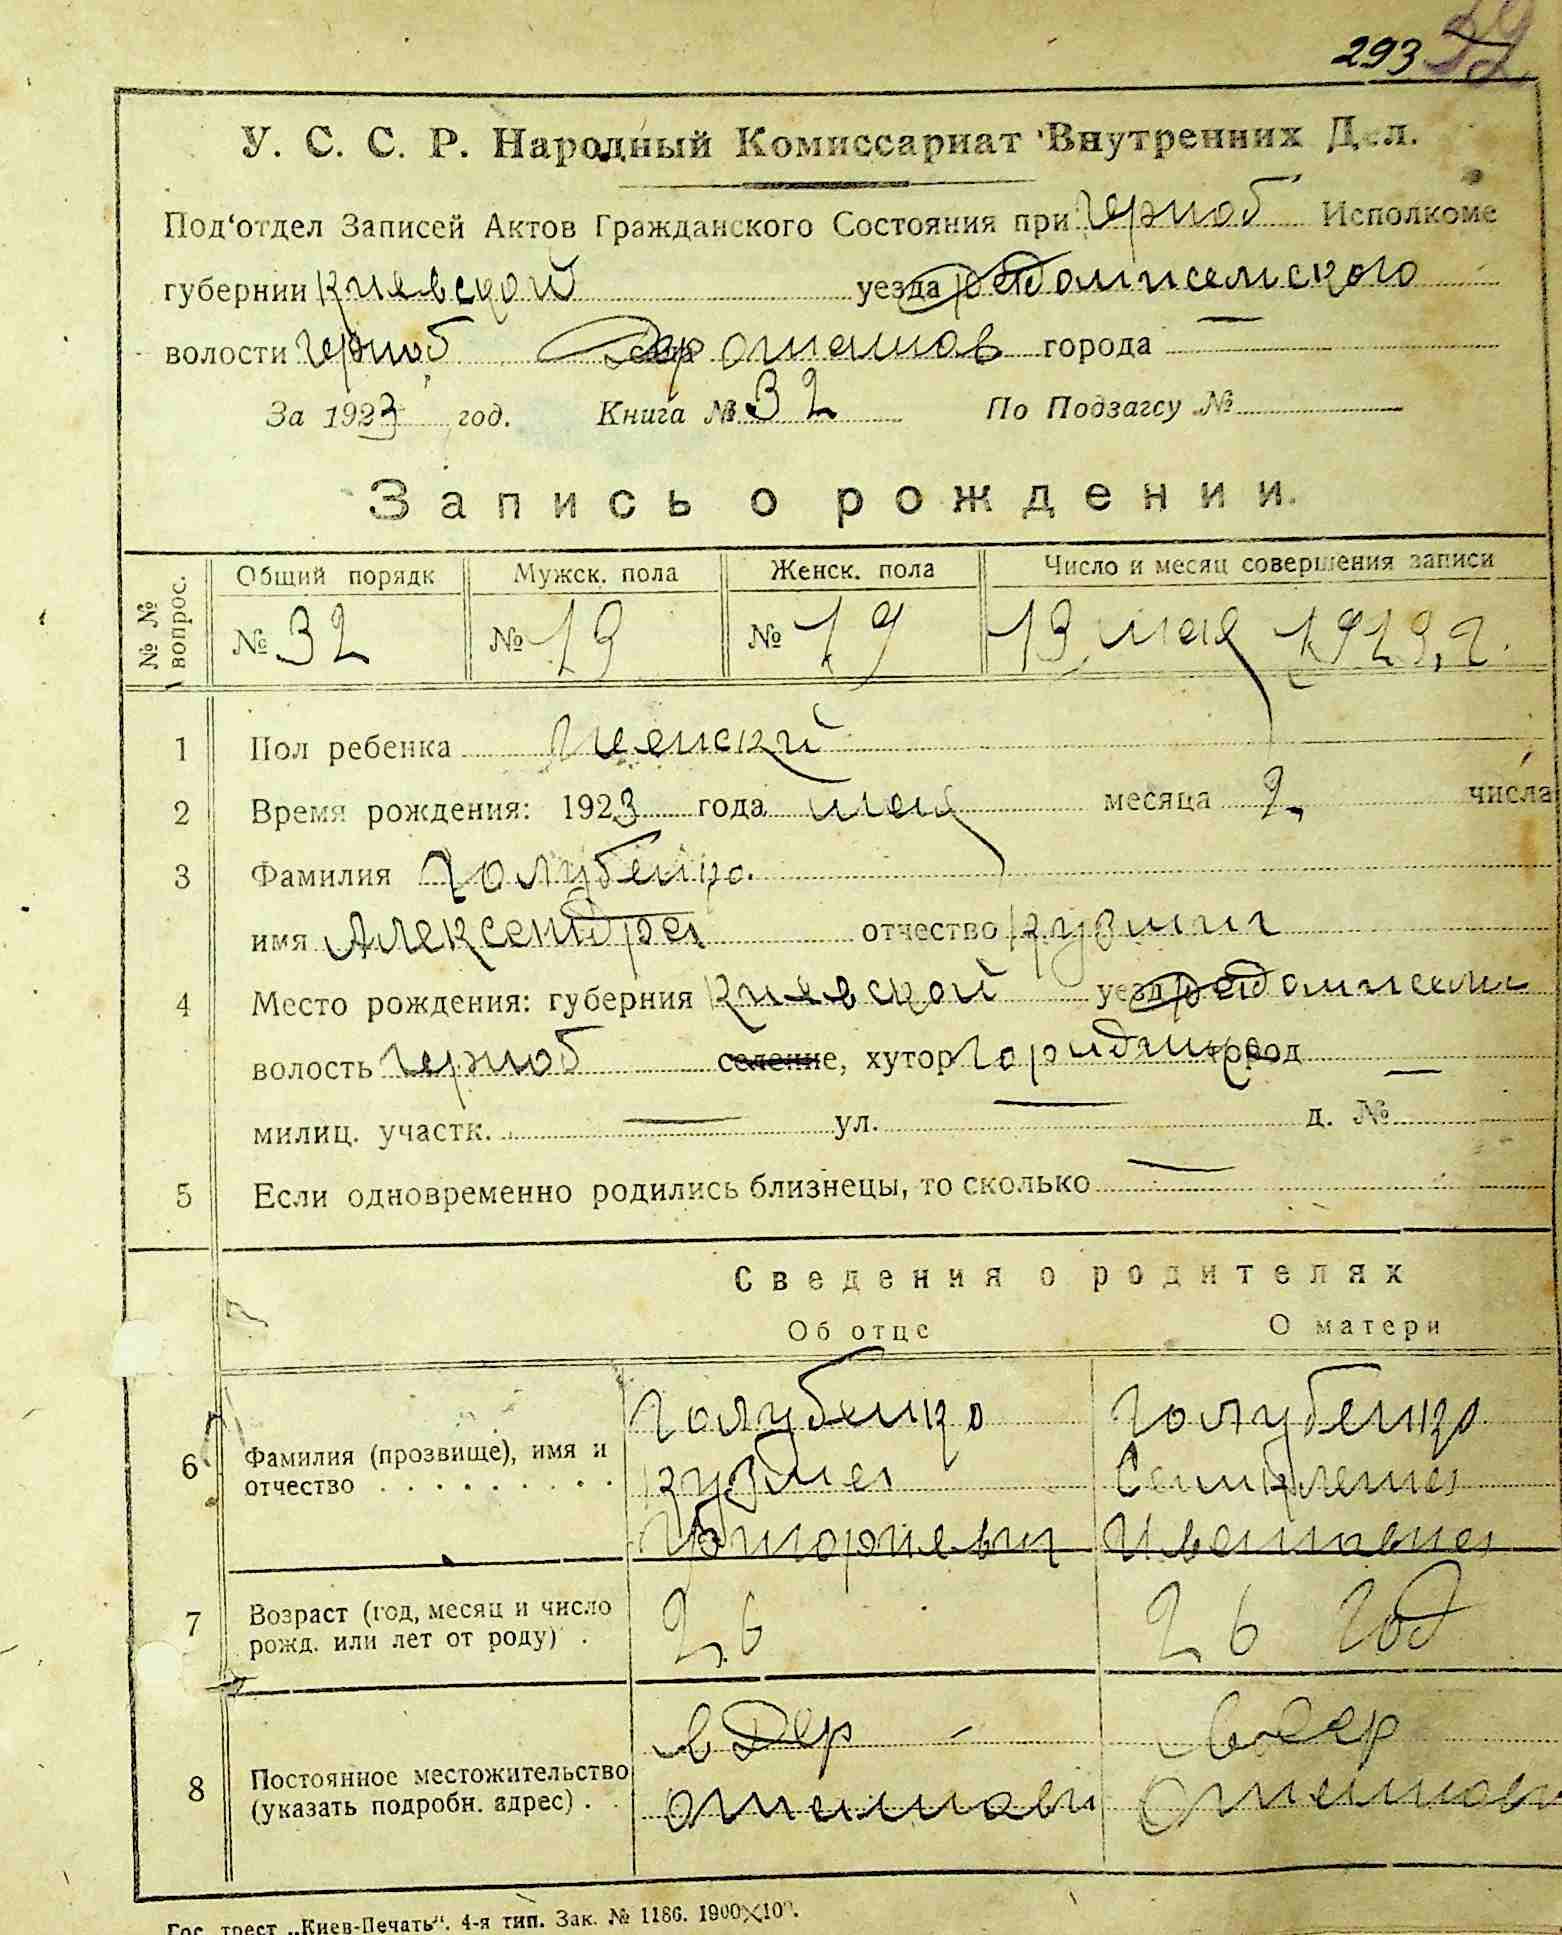 293
У. С. С. Р. Народный Комиссариат Внутренних Дел.
Под'отдел Записей Актов Гражданского Состояния при Черноб Исполкоме
губернии Киевской уезда Радомисельского
волости Черноб дер Оташов города —
За 1923 год. Книга № 32 По Подзагсу №
Запись о рождении.
№ № вопрос. Общий порядк Мужск. пола Женск. пола Число и месяц совершения записи
№ 32 № 13 № 19 13 мая 1923 г.
1 Пол ребенка Женский
2 Время рождения: 1923 года мая месяца 2 числа
3 Фамилия Голубенко.
имя Александра отчество Кузмин
4 Место рождения: губерния Киевской уезд Радомисел
волость Черноб селение, хутор город —
милиц. участк. — ул. — д. №
5 Если одновременно родились близнецы, то сколько —
Сведения о родителях
Об отце О матери
6 Фамилия (прозвище), имя и отчество . . . . . . . . . .
Голубенко Голубенко
Кузма
Григориевич Ивановна
7 Возраст (год, месяц и число рожд. или лет от роду) .
26 26 год
8 Постоянное местожительство (указать подробн. адрес) .
в дер в дер
Оташови Оташови
Гос. трест „Киев-Печать“. 4-я тип. Зак. № 1186. 1900×10